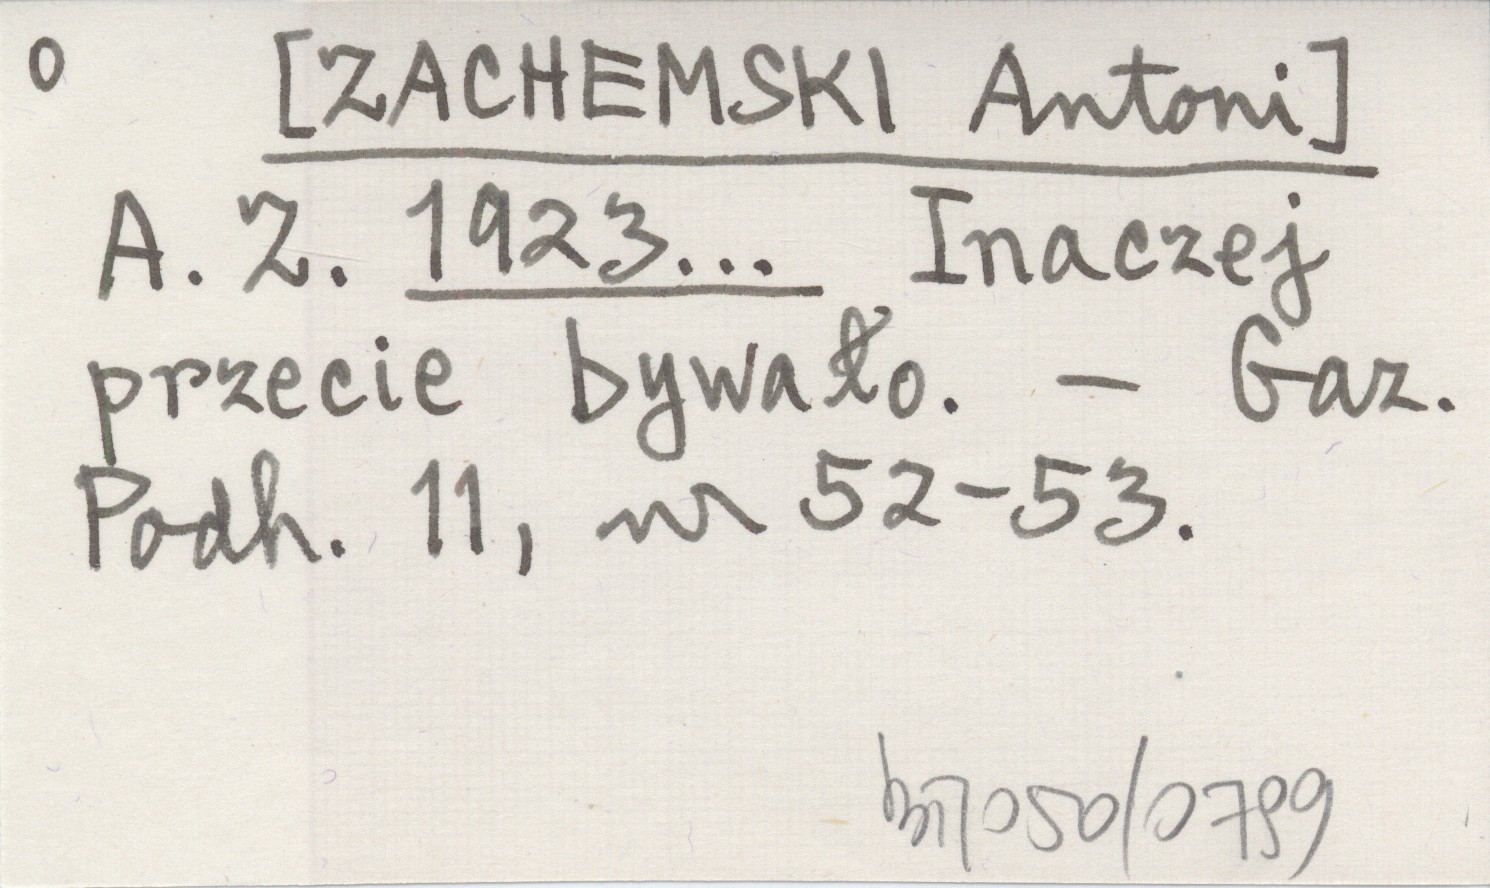 o [ZACHEMSKI Antoni]
A. Z. 1923... Inaczej
przecie bywało. – Gaz.
Podh. 11, nr 52-53.
050/0799